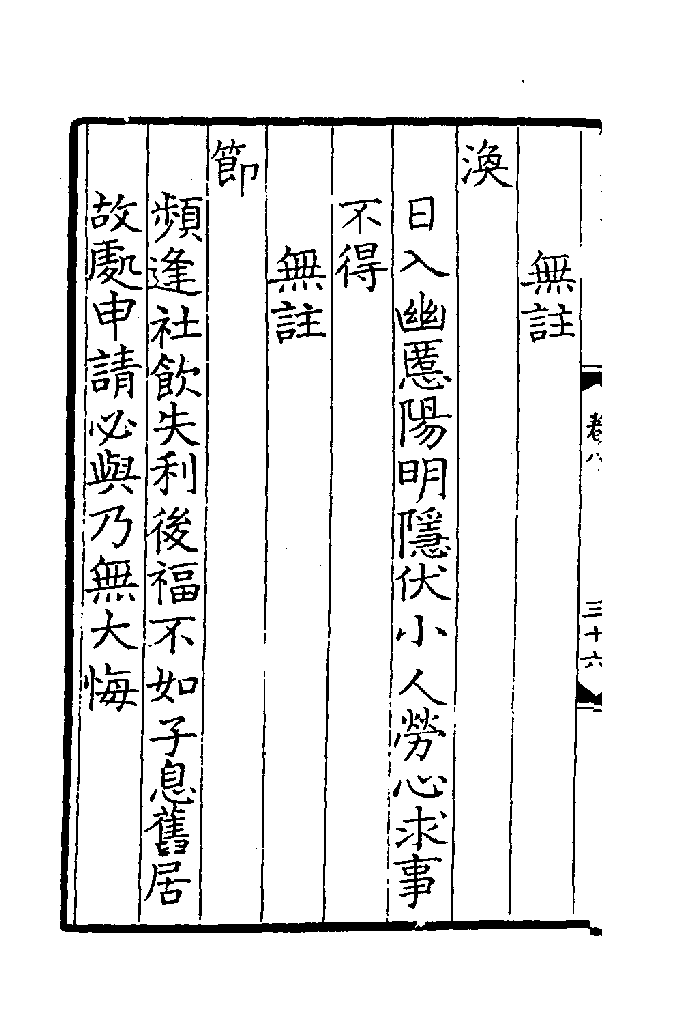 卷八
三十六
無註
渙
日入幽慝陽明隱伏小人勞心求事
不得
無註
節
頻逢社飲失利後福不如子息舊居
故處申請必與乃無大悔